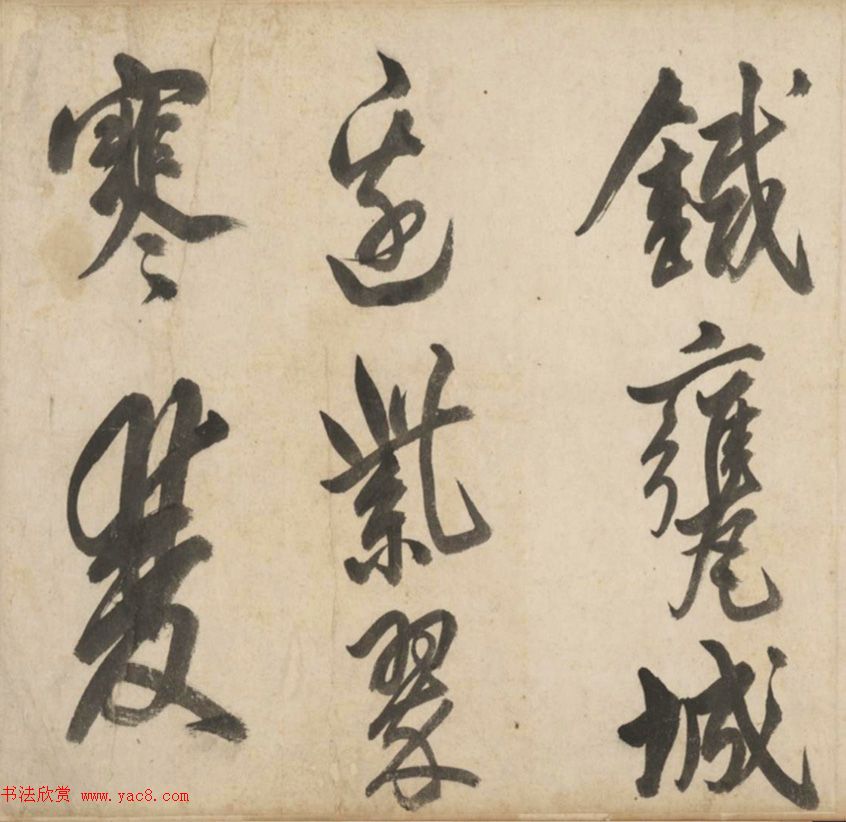 鐵甕城
邊紫翠
寒雙
书法欣赏 www.yac8.com